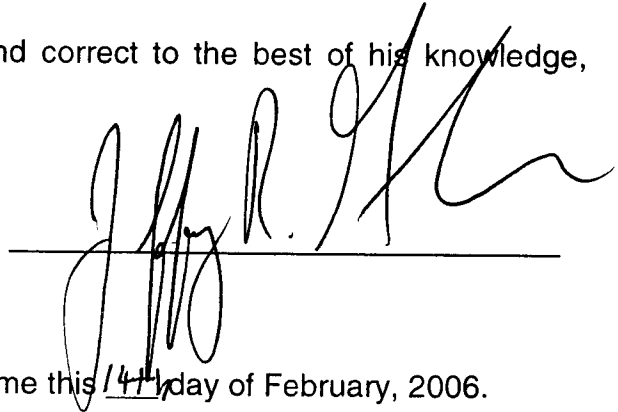 nd correct to the best of his knowledge,
Jeffrey R.
me this 14th day of February, 2006.